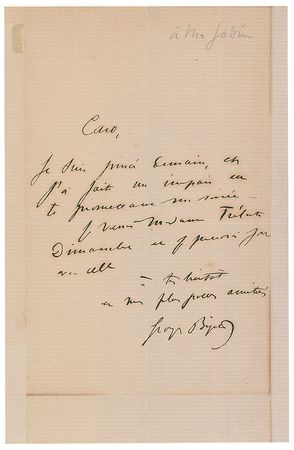 à Mr Jadin
Caro,
Je suis pincé demain, et
j'ai fait un impair en
te promettant ma soirée
Je verrai Madame Trélat
Dimanche et je
elle
à bientôt
et mes plus amitiés
Georges Bizet